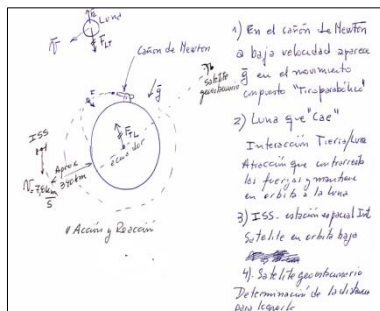 Luna
F_LT
Cañón de Newton
satélite
geoestacionario
g
ISS
F_TL
ecuador
Aprox
Acción y Reacción
1) En el cañón de Newton
a baja velocidad aparece
g en el movimiento
compuesto "Tiroparabólico"
2) Luna que "Cae"
Interacción Tierra/Luna
Atracción que
las fuerzas y mantiene
en orbita a la luna
3) ISS - estación espacial Int
Satelite en orbita bajo
4). Satelite geoestacionario
Determinación de la distancia
para